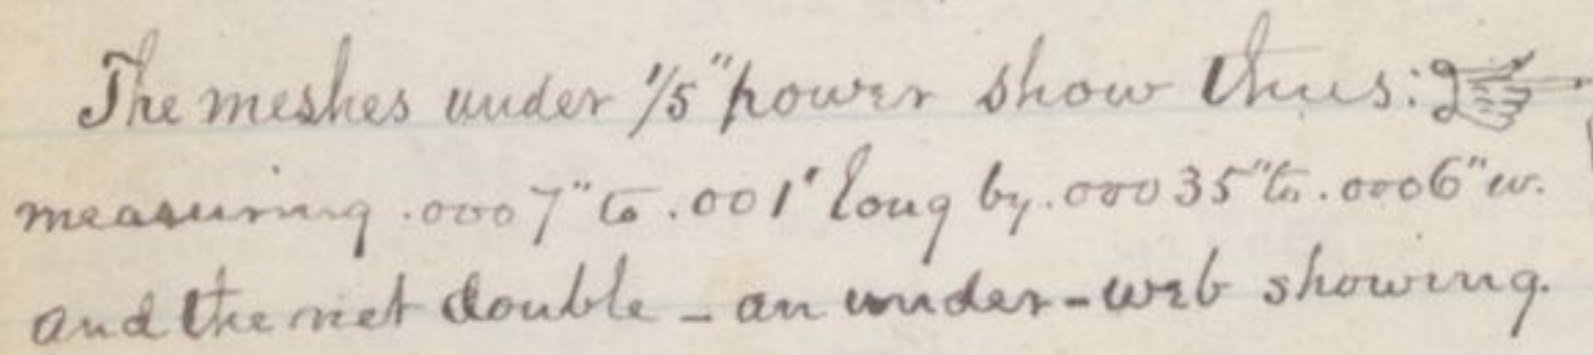 The meshes under 1/5" power show thus: ☞
measuring .0007" to .001" long by .00035" to .0006" w.
and the net double - an under-web showing.